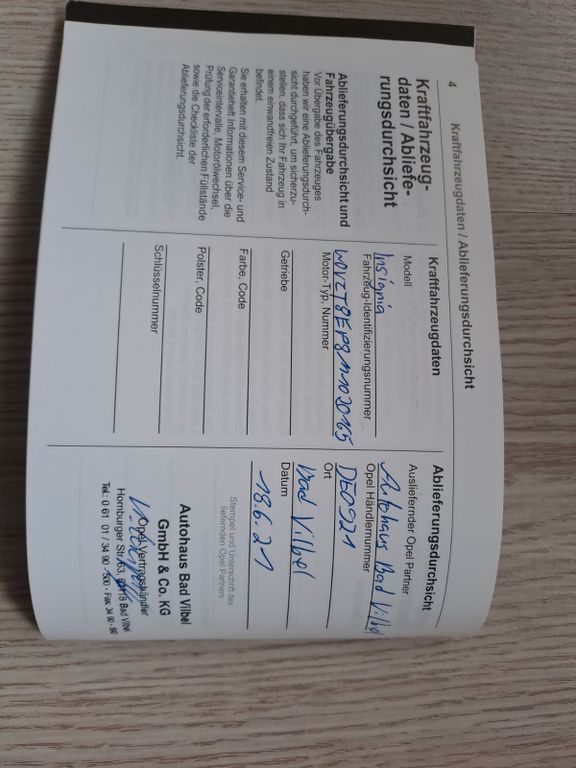 4
Kraftfahrzeugdaten / Ablieferungsdurchsicht
Kraftfahrzeug-
daten / Abliefe-
rungsdurchsicht
Ablieferungsdurchsicht und
Fahrzeugübergabe
Vor Übergabe des Fahrzeuges
haben wir eine Ablieferungsdurch-
sicht durchgeführt, um sicherzu-
stellen, dass sich Ihr Fahrzeug in
einem einwandfreien Zustand
befindet.
Sie erhalten mit diesem Service- und
Garantieheft Informationen über die
Serviceintervalle, Motorölwechsel,
Prüfung der erforderlichen Füllstände
sowie die Checkliste der
Ablieferungsdurchsicht.
Kraftfahrzeugdaten
Modell
Insignia
Fahrzeug-Identifizierungsnummer
Motor-Typ, Nummer
Getriebe
Farbe, Code
Polster, Code
Schlüsselnummer
Ablieferungsdurchsicht
Ausliefernder Opel Partner
Autohaus Bad Vilbel
Opel Händlernummer
DE0921
Ort
Bad Vilbel
Datum
18.6.21
Stempel und Unterschrift des
liefernden Opel Partners
Autohaus Bad Vilbel
GmbH & Co. KG
Opel Vertragshändler
Homburger Str. 63, Bad Vilbel
Tel.: 0 61 01 / 34 90 - 500 · Fax 34 90 -